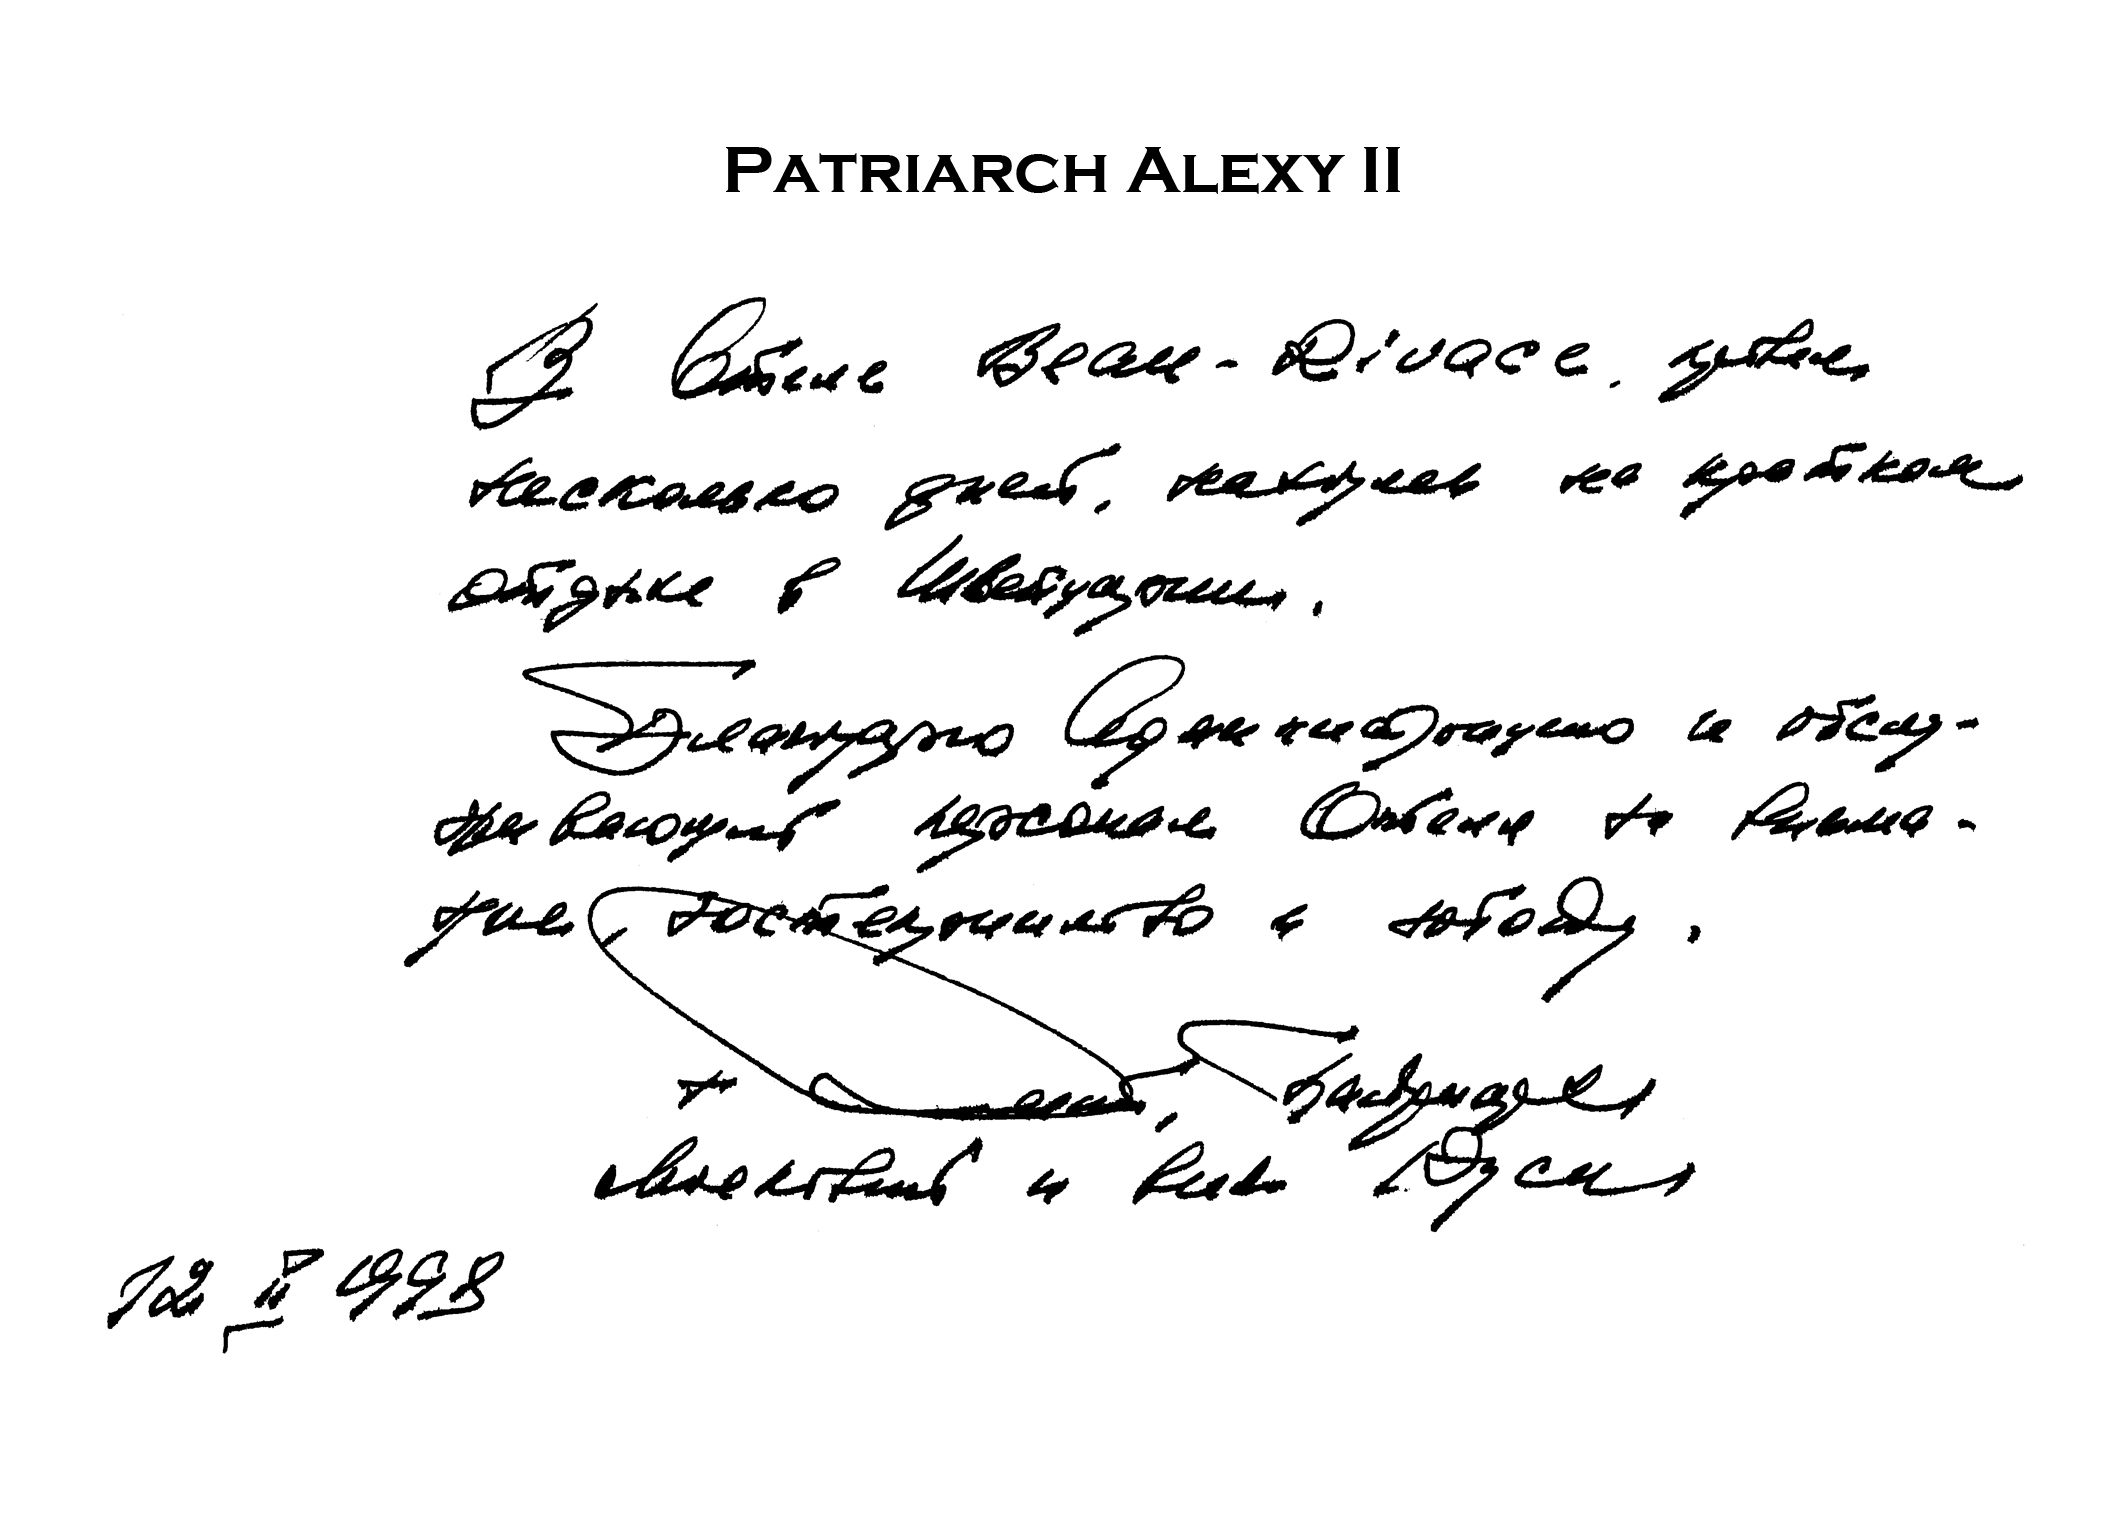 PATRIARCH ALEXY II
В Отеле Beau-Rivace, провел
несколько дней, находясь на кратком
отдыхе в Швейцарии.
Благодарю Администрацию и обслу-
живающий персонал Отеля за внима-
ние, гостеприимство и заботу.
+ Алексий, Патриарх
Московский и всея Руси
12 II 1998